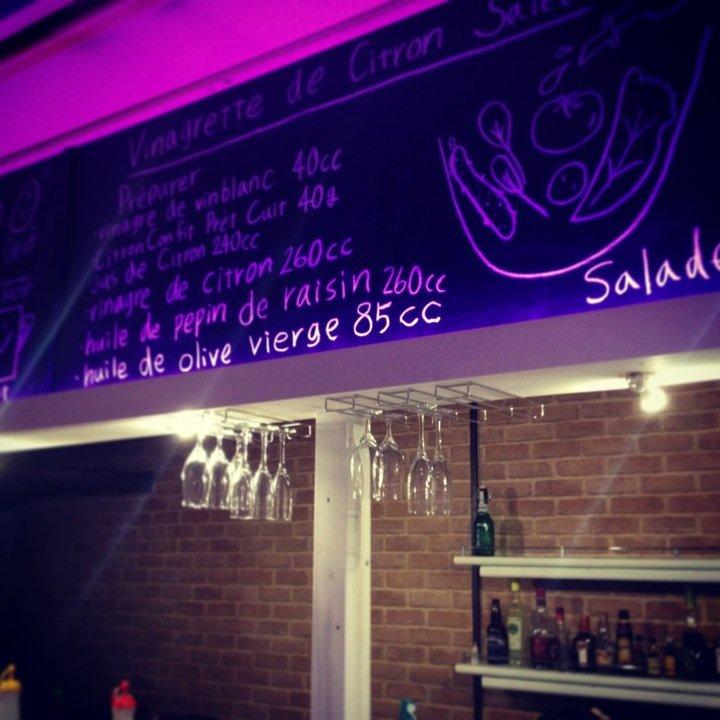 Vinagrette de Citron Salad
Préparer
·vinagre de vinblanc 40cc
·Citron Confit Prêt Cuit 40g
·Jus de Citron 240cc
·vinagre de citron 260cc
·huile de pepin de raisin 260cc
·huile de olive vierge 85cc
Salade